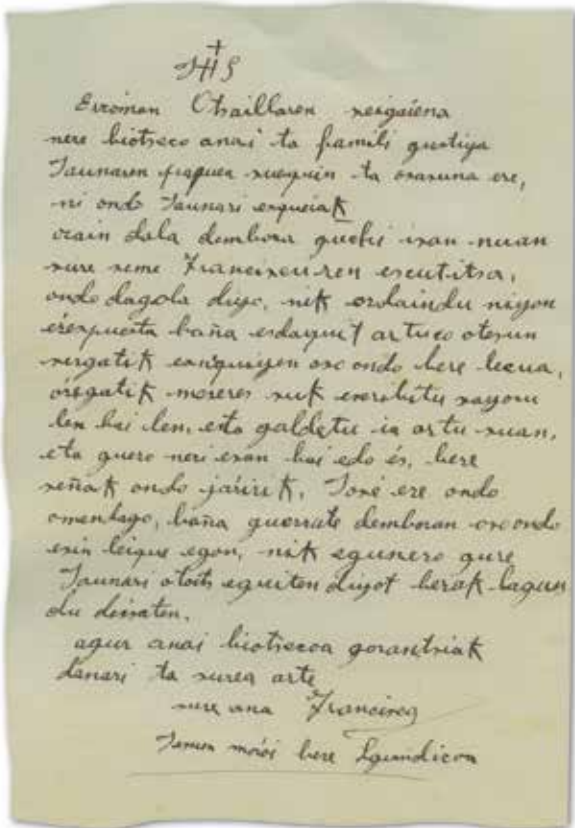 JHS
Erroman Otsaillaren seigaiena
nere biotseco anai ta famili gustiya
Jaunaren paquea suequin ta osasuna ere,
ni ondo Jaunari esqueiak
orain dala dembora guchi isan nuan
sure seme Franciscu-ren escutitsa,
ondo dagola diyo, nik ordaindu niyon
erespuesta baña esdaquit artuco otesun
sergatik esnquiyen oso ondo bere lecua,
oregatik mereres suk escribitu sayosu
len bai len, eta galdetu ia artu suan,
eta guero neri esan bai edo és, bere
señak ondo jarririk, José ere ondo
omendago, baña guerrate demboran oso ondo
esin leique egon, nik egunero gure
Jaunari otoits eguiten diyot berak lagun
du deisaten.
agur anai biotsecoa gorantsiak
danari ta surea arte
sure ana Francisca
bere